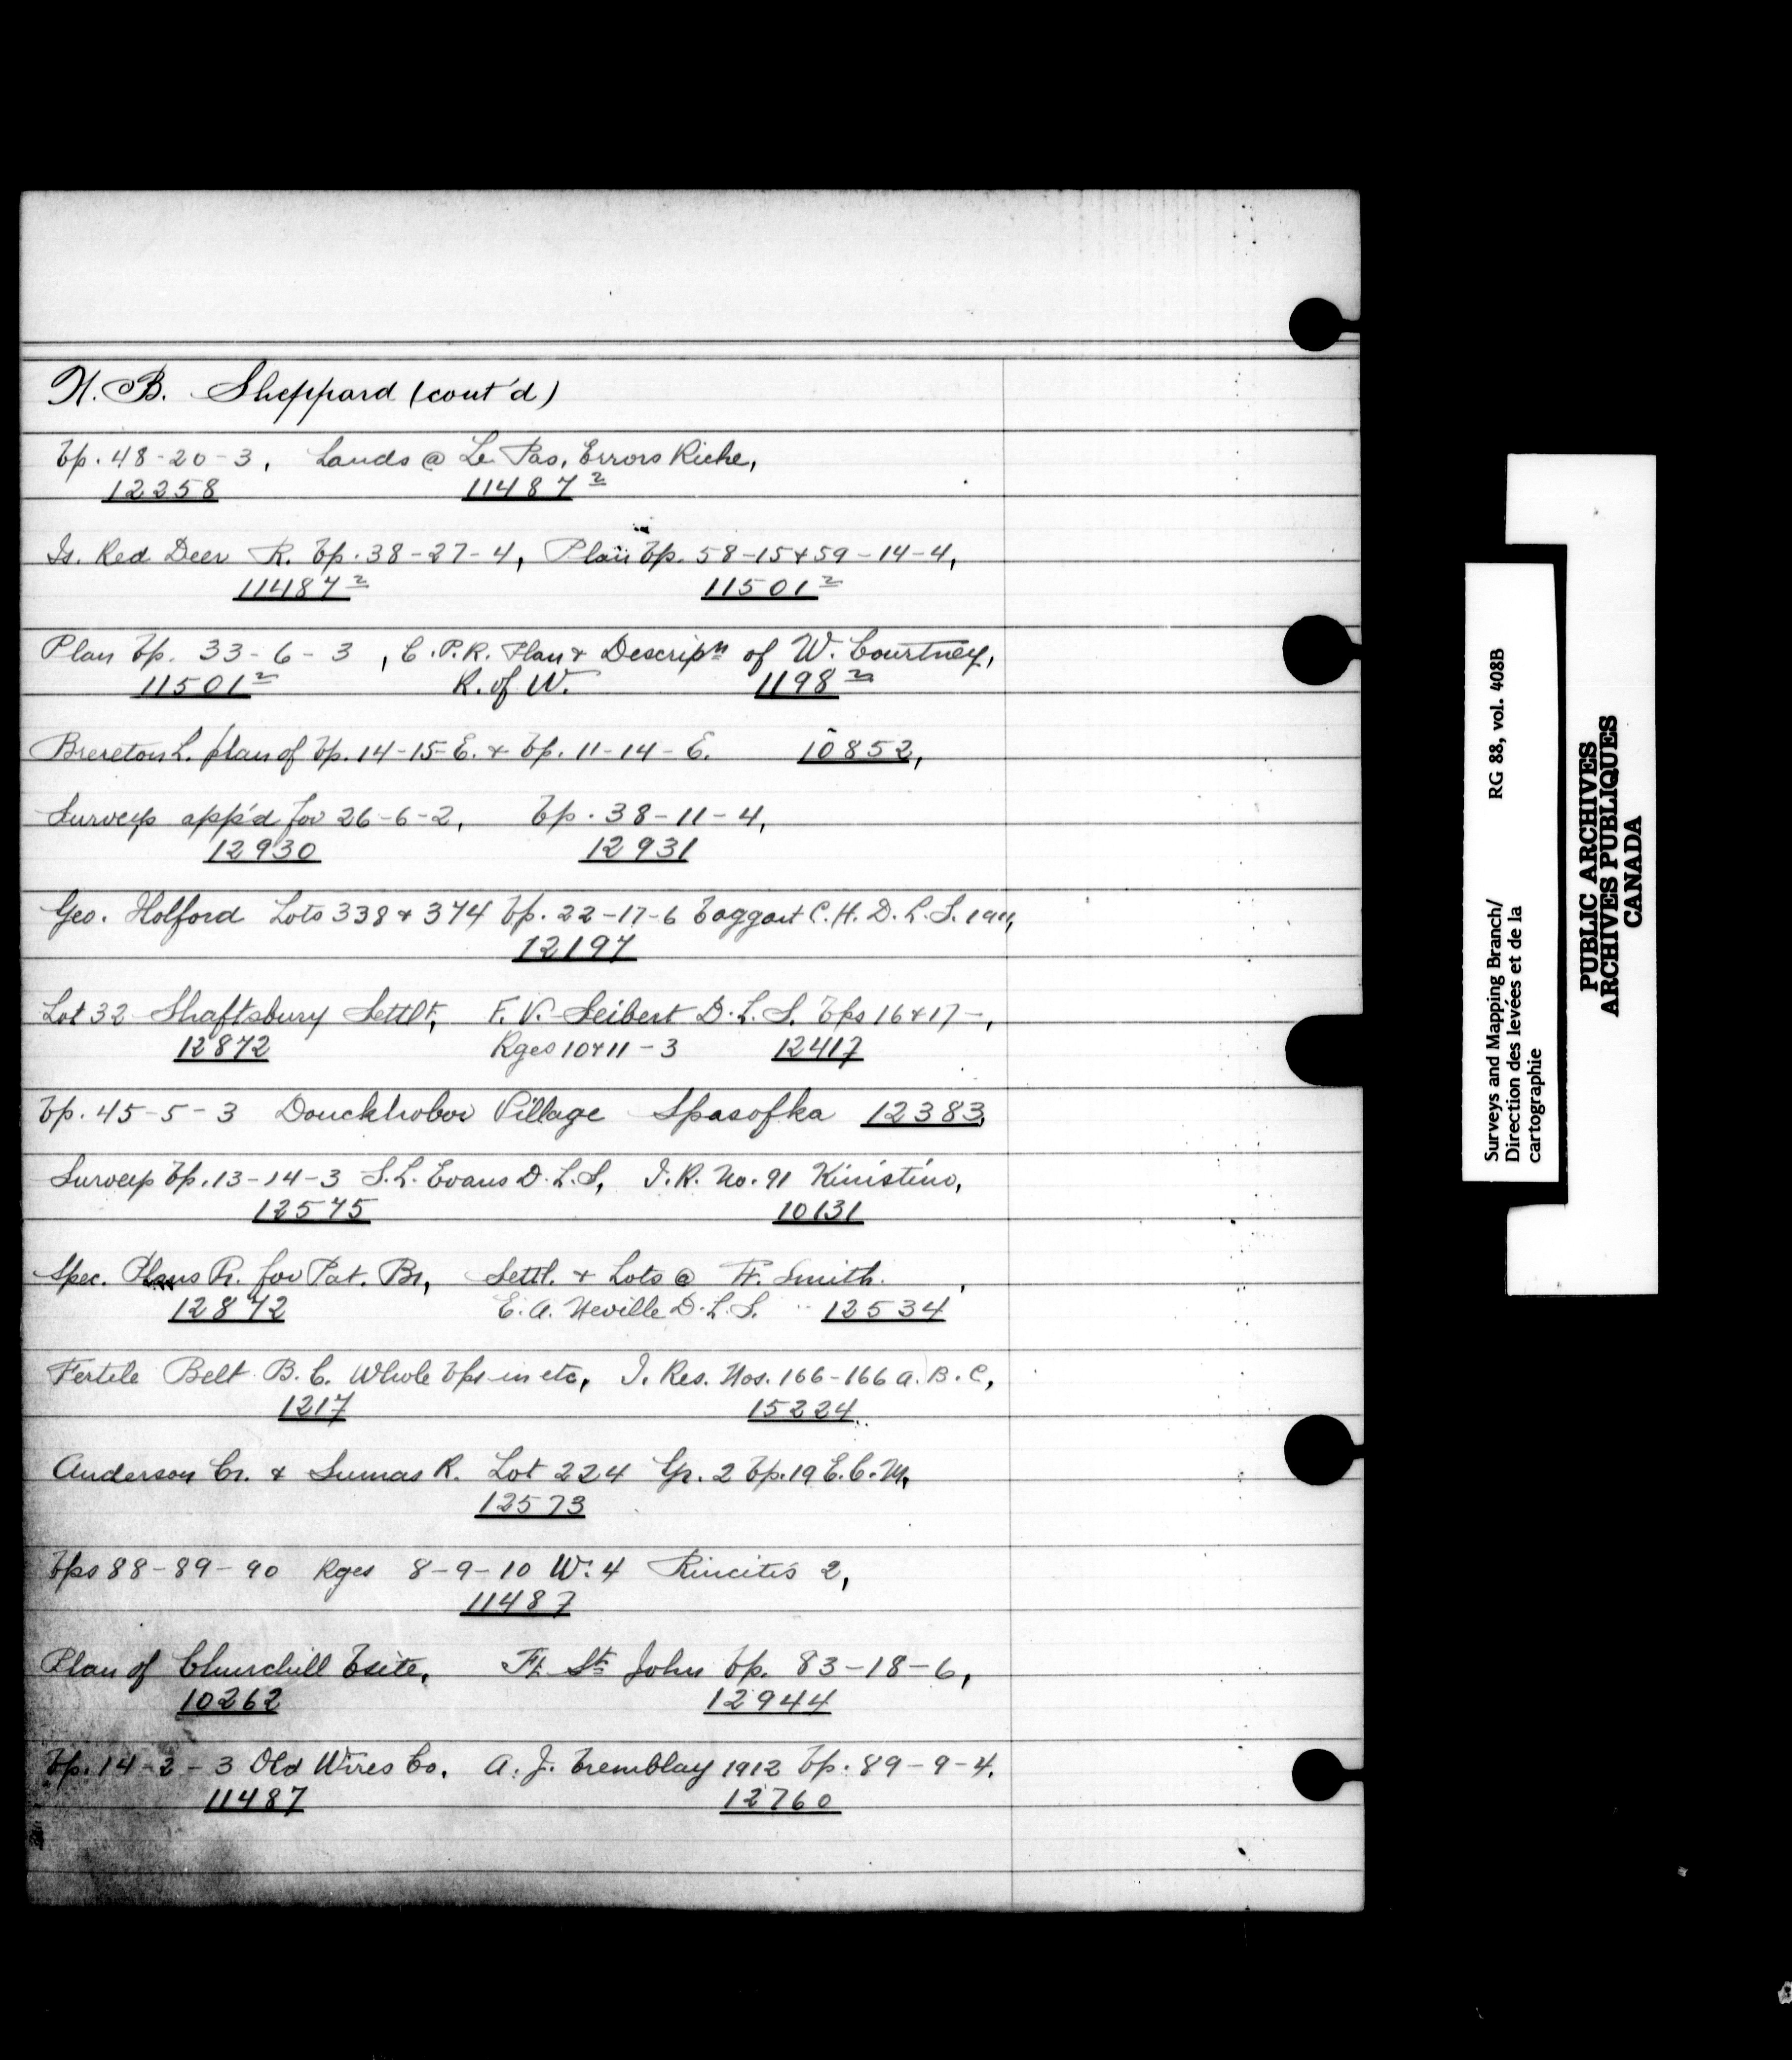 H. B. Sheppard (cont'd)
Tp. 48-20-3, Lands @ Le Pas, Errors Riche,
12258 11487²
Is. Red Deer R. Tp. 38-27-4, Plan Tp. 58-15 & 59-14-4,
11487² 11501²
Plan Tp. 33-6-3, C.P.R. Plan & Descripn of W. Courtney,
11501² R. of W. 1198²
Brereton L. plan of Tp. 14-15-E. & Tp. 11-14-E. 10852,
Surveys app'd for 26-6-2, Tp. 38-11-4,
12930 12931
Geo. Holford Lots 338 & 374 Tp. 22-17-6 Taggart C.H. D.L.S. 1911,
12197
Lot 32 Shaftsbury Settlt, F. V. Seibert D.L.S. Tps 16 & 17-,
12872 Rges 10 & 11-3 12417
Tp. 45-5-3 Douckhobor Village Spasofka 12383,
Surveys Tp. 13-14-3 S.L. Evans D.L.S, I.R. No. 91 Kinistino,
12575 10131
Spec. Plans R. for Pat. Br, Settl. & Lots @ Ft. Smith.,
12872 E. A. Neville D.L.S. 12534
Fertile Belt B.C. Whole Tps in etc, I. Res. Nos. 166-166 a. B. C,
1217 15224
Anderson Cr. & Sumas R. Lot 224 Gr. 2 Tp. 19 E.C.M,
12573
Tps 88-89-90 Rges 8-9-10 W. 4 2,
11487
Plan of Churchill Tsite, Ft. St. John Tp. 83-18-6,
10262 12944
Tp. 14-2-3 Old Wires Co, A. J. Tremblay 1912 Tp. 89-9-4.
11487 12760
Surveys and Mapping Branch/ RG 88, vol. 408B
Direction des levées et de la
cartographie
PUBLIC ARCHIVES
ARCHIVES PUBLIQUES
CANADA